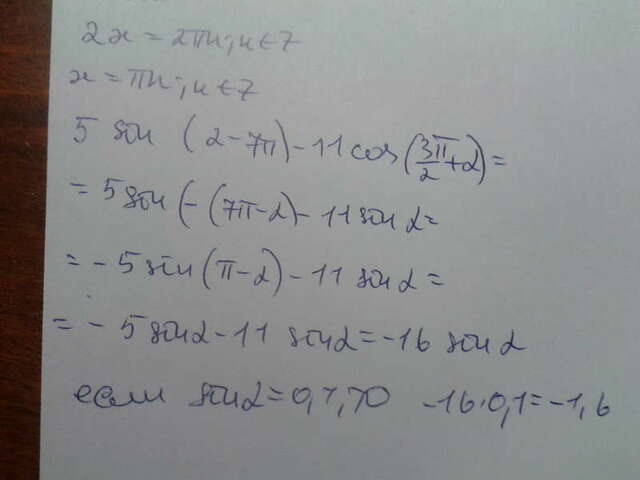 2x = 2πn; n∈Z
x = πn; n∈Z
5 sin (α - 7π) - 11 cos (3π/2 + α) =
= 5 sin (-(7π - α) - 11 sin α =
= - 5 sin (π - α) - 11 sin α =
= - 5 sin α - 11 sin α = -16 sin α
если sin α = 0,1, то -16·0,1 = -1,6